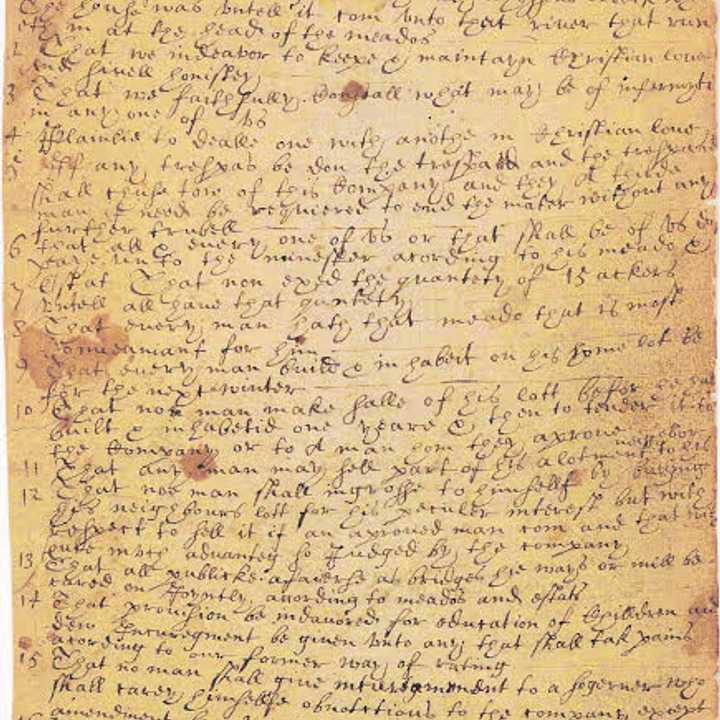 The house was untell it com unto that river that run
eth in at the head of the meados
2 That we indeavor to keepe & maintayn Christian love
and sivell honisty
3 That we faithfully Counsall what may be of infermyti
in any one of us
4 Plainlie to dealle one with anothe in Christian love
5 eff any trespas be don the trespased and the trespaser
shall chuse tow of this Company and they A thirde
man if need be requiered to end the mater without any
further trubell
6 that all & every one of us or that shall be of us do
paye unto the minnester acording to his meado &
7 Estat That non exed the quantety of 15 ackers
untell all have that quntety
8 That every man hath that meado that is most
Conveaniant for him
9 That every man build & inhabeit on his home lot be
for the next winter
10 That noe man make salle of his lott before he hat
built & inhabetid one yeare & then to tender it to
the Company or to A man hom they aprove
11 That any man may sell part of his alotment to his
neghbor
12 That noe man shall ingrosse to himsellf by buying
his neighbours lott for his peculer interest but with
respect to sell it if an aproved man com and that
much advanteg to Judged by the company
13 That all publicke afaierse as bridges hie ways or mill be
caried on Joyntly acording to meados and estats
14 That provision be indavored for education of Chilldren and
then Incuregment be given unto any that shall tak pains
acording to our former way of rating
15 That no man shall give incuregmment to a sogerner who
shall carey himsellfe obnoctious to the company except
amendment